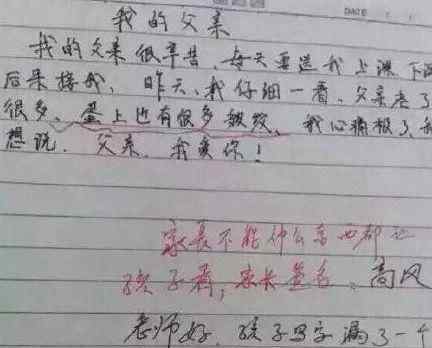 DATE
我的父亲
我的父亲很辛苦,每天要送我上课,下课
后来接我,昨天,我仔细一看,父亲老了
很多,蛋上也有很多皱纹,我心痛极了,我
想说,父亲,我爱你!
家长不能什么东西都让
孩子看,家长签名:高风
老师好,孩子写字漏了一个